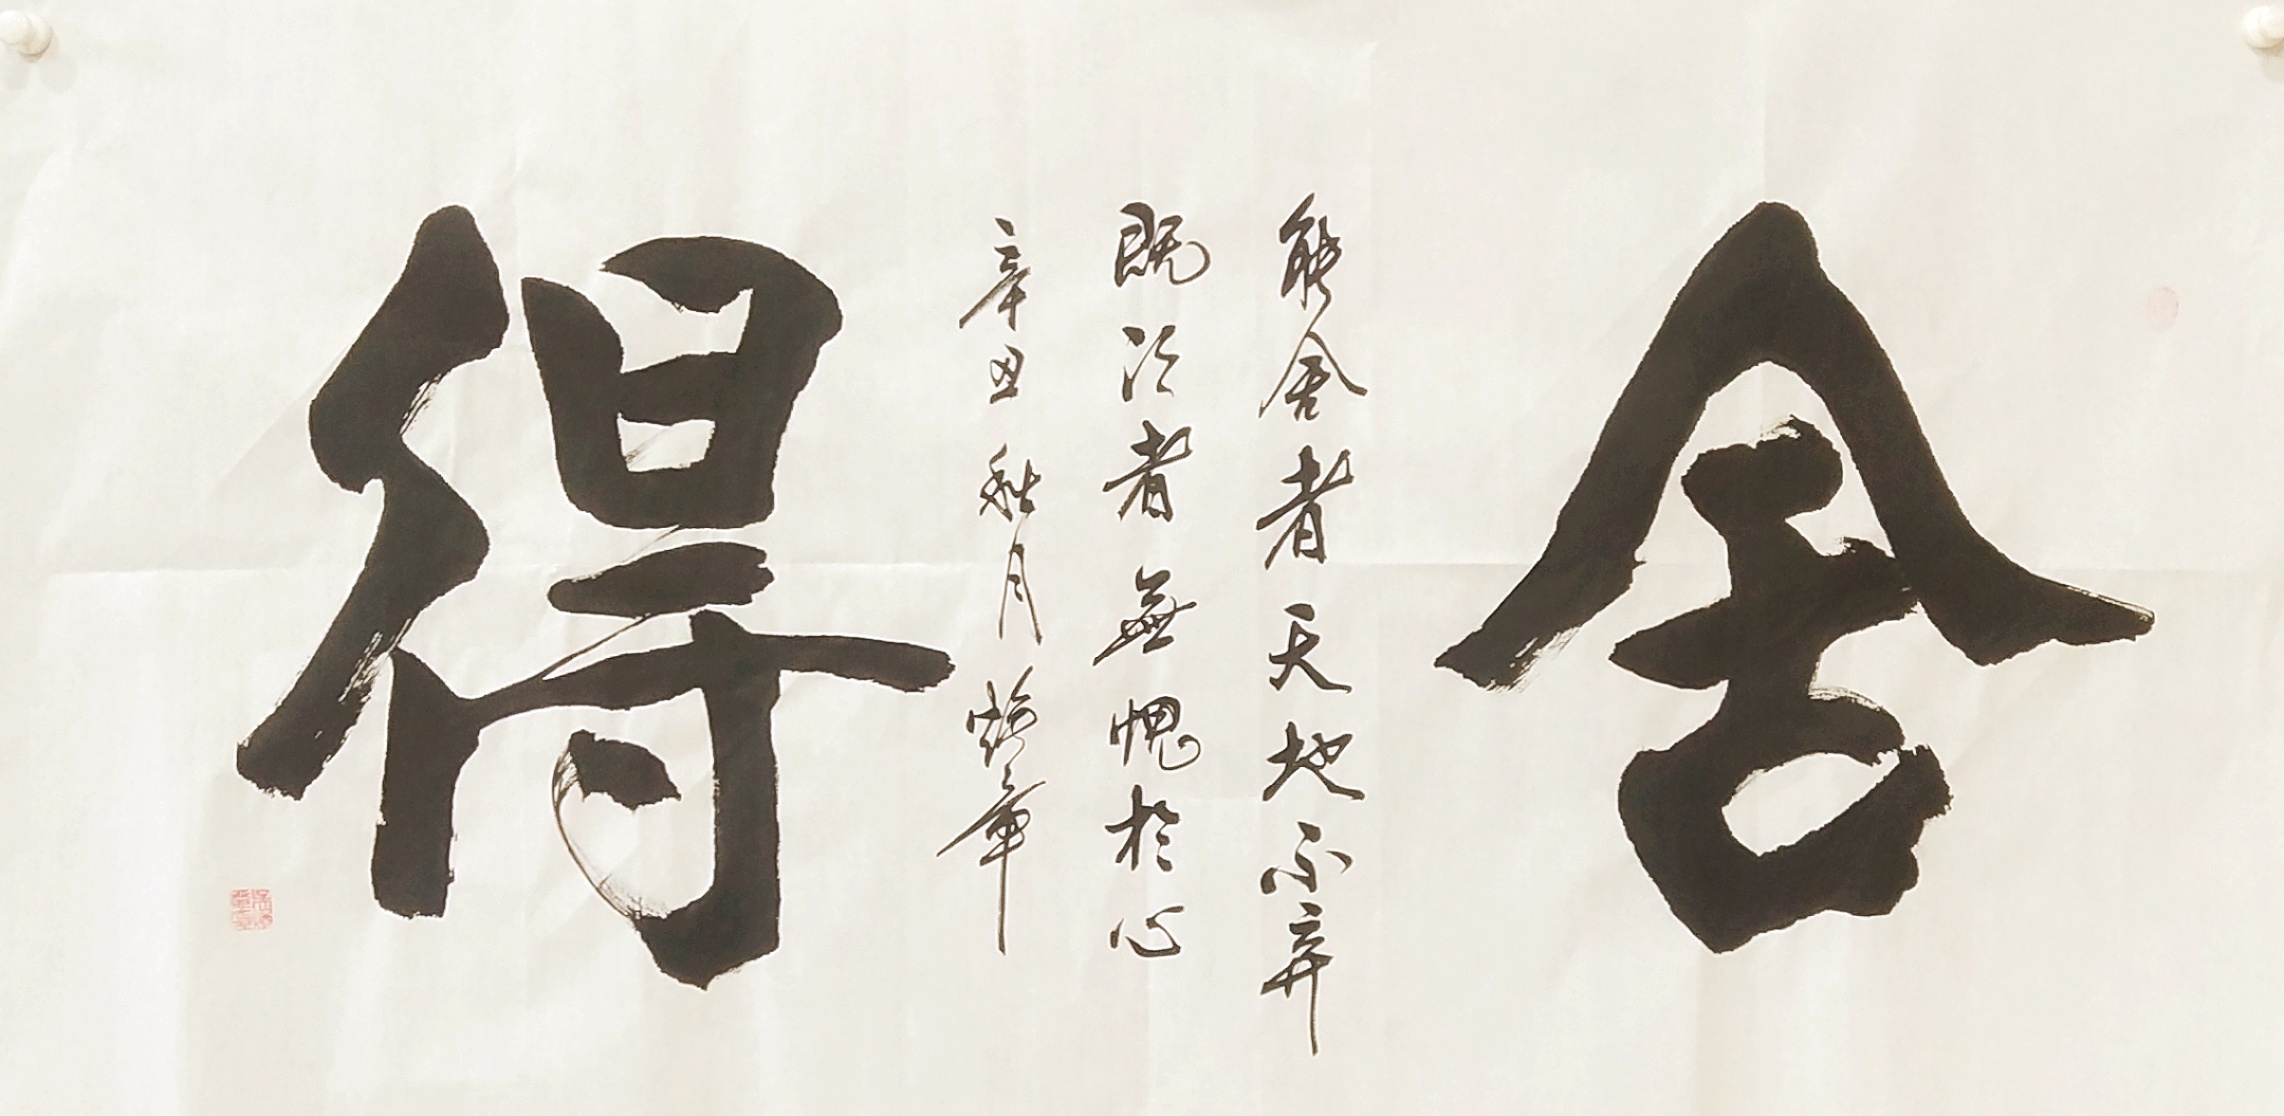 舍
能舍者天地不弃
既得者無愧於心
辛丑秋月
得